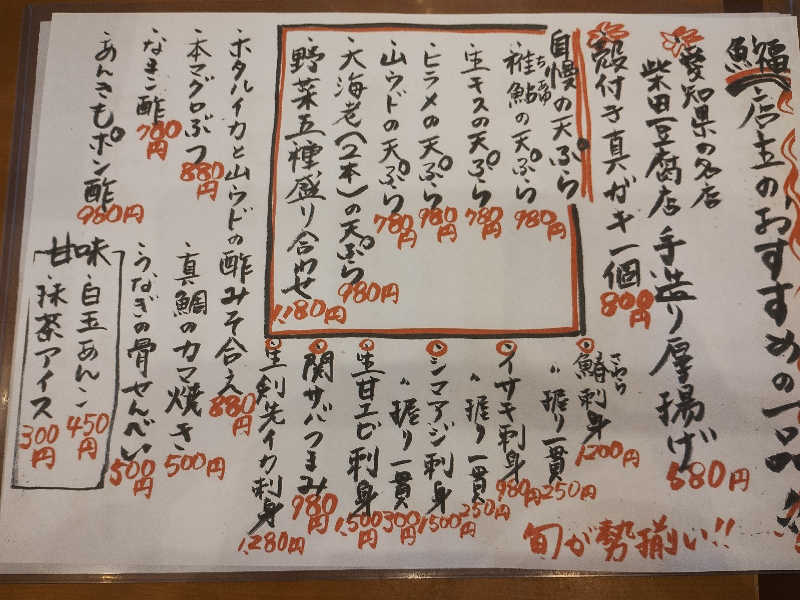 鮨福 店主のおすすめの一品
愛知県の名店
柴田豆腐店 手造り厚揚げ 580円
殻付き真ガキ一個 800円
自慢の天ぷら
稚鮎の天ぷら 980円
生キスの天ぷら 780円
ヒラメの天ぷら 980円
山ウドの天ぷら 780円
大海老(2本)の天ぷら 980円
野菜五種盛り合わせ 1,180円
さわら
鰆刺身 1,200円
〃 握り一貫 250円
イサキ刺身 980円
〃 握り一貫 250円
シマアジ刺身 1,500円
〃 握り一貫 300円
生甘エビ刺身 1,500円
関サバつまみ 980円
生剣先イカ刺身 1,280円
旬が勢揃い!!
ホタルイカと山ウドの酢みそ合え 880円
本マグロぶつ 880円
真鯛のカマ焼き 500円
なまこ酢 780円
うなぎの骨せんべい 500円
あんきもポン酢 980円
甘味
白玉あんこ 450円
抹茶アイス 300円